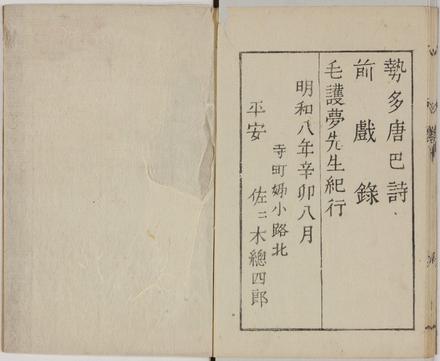 勢多唐巴詩
前戯錄
毛護夢先生紀行
明和八年辛卯八月
寺町姉小路北
平安　佐々木總四郎